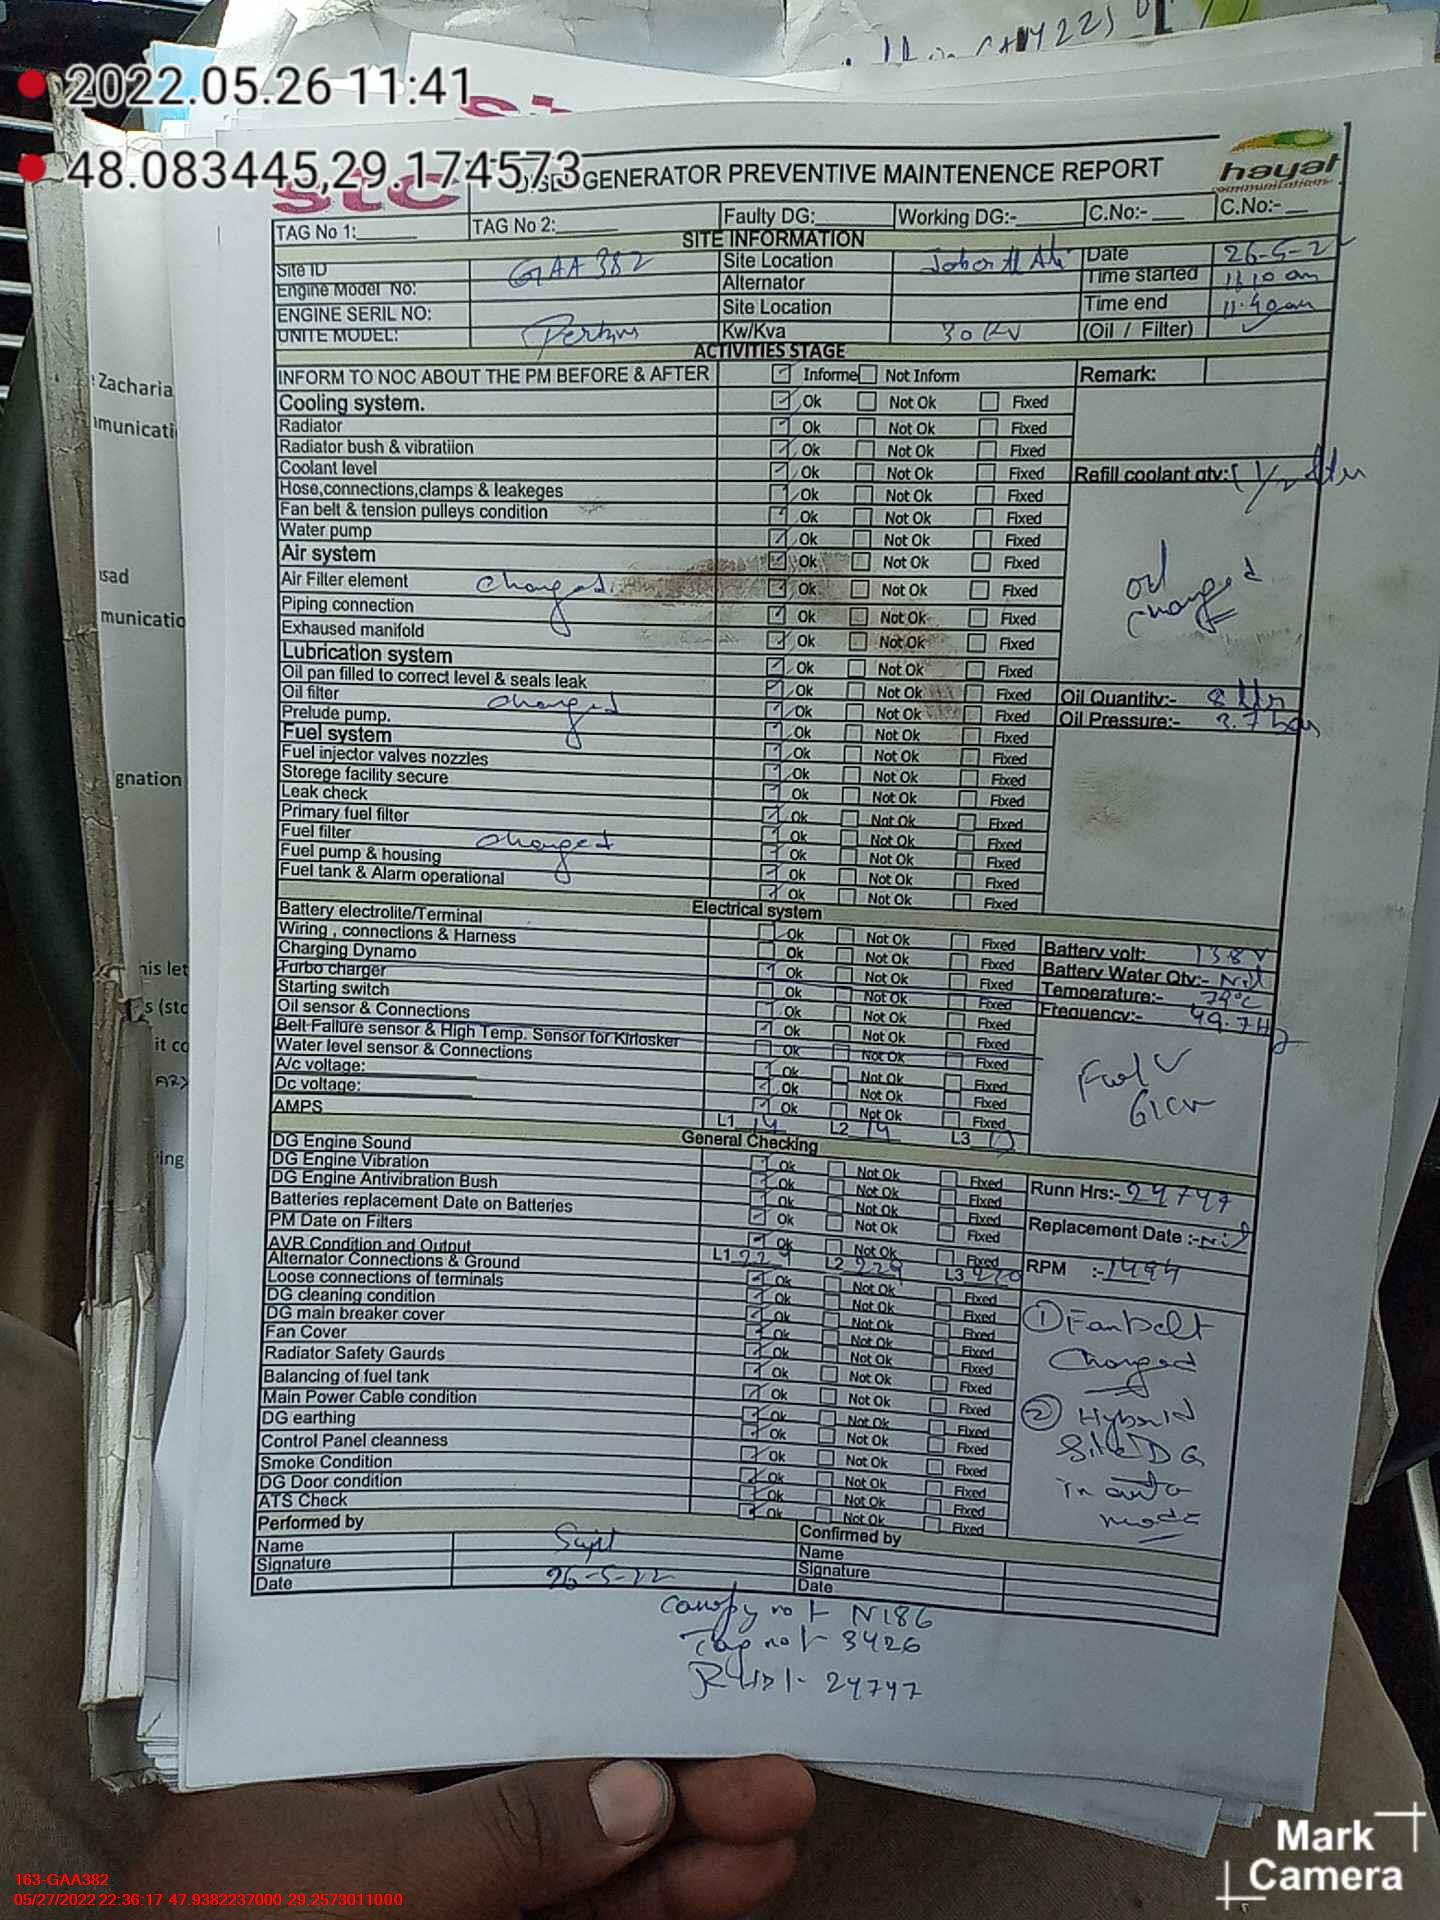 2022.05.26 11:41
48.083445,29.174573
stc GENERATOR PREVENTIVE MAINTENENCE REPORT hayat communications
TAG No 1: TAG No 2: Faulty DG: Working DG:- C.No:- C.No:-
SITE INFORMATION
Site ID GAA382 Site Location Date 26-5-22
Engine Model No: Alternator Time started 11.10 am
ENGINE SERIL NO: Site Location Time end 11.40am
UNITE MODEL: Perkins Kw/Kva 30 (Oil / Filter)
ACTIVITIES STAGE
INFORM TO NOC ABOUT THE PM BEFORE & AFTER Informe Not Inform Remark:
Cooling system. Ok Not Ok Fixed
Radiator Ok Not Ok Fixed
Radiator bush & vibratiion Ok Not Ok Fixed
Coolant level Ok Not Ok Fixed Refill coolant qty: 1/2
Hose,connections,clamps & leakeges Ok Not Ok Fixed
Fan belt & tension pulleys condition Ok Not Ok Fixed
Water pump Ok Not Ok Fixed
Air system Ok Not Ok Fixed
Air Filter element changed Ok Not Ok Fixed oil changed
Piping connection Ok Not Ok Fixed
Exhaused manifold Ok Not Ok Fixed
Lubrication system Ok Not Ok Fixed
Oil pan filled to correct level & seals leak Ok Not Ok Fixed Oil Quantity:- 8 ltr
Oil filter changed Ok Not Ok Fixed Oil Pressure:- 3.7 bar
Prelude pump. Ok Not Ok Fixed
Fuel system Ok Not Ok Fixed
Fuel injector valves nozzles Ok Not Ok Fixed
Storege facility secure Ok Not Ok Fixed
Leak check Ok Not Ok Fixed
Primary fuel filter Ok Not Ok Fixed
Fuel filter changed Ok Not Ok Fixed
Fuel pump & housing Ok Not Ok Fixed
Fuel tank & Alarm operational Ok Not Ok Fixed
Electrical system
Battery electrolite/Terminal Ok Not Ok Fixed Battery volt: 13.8 V
Wiring , connections & Harness Ok Not Ok Fixed Battery Water Qty:- Nil
Charging Dynamo Ok Not Ok Fixed Temperature:- 79°C
Turbo charger Ok Not Ok Fixed Frequency:- 49.7Hz
Starting switch Ok Not Ok Fixed
Oil sensor & Connections Ok Not Ok Fixed
Belt Failure sensor & High Temp. Sensor for Kirlosker Ok Not Ok Fixed
Water level sensor & Connections Ok Not Ok Fixed Fuel
A/c voltage: Ok Not Ok Fixed
Dc voltage: Ok Not Ok Fixed
AMPS L1 14 L2 14 L3 13
General Checking
DG Engine Sound Ok Not Ok Fixed
DG Engine Vibration Ok Not Ok Fixed Runn Hrs:- 24747
DG Engine Antivibration Bush Ok Not Ok Fixed
Batteries replacement Date on Batteries Ok Not Ok Fixed Replacement Date :-Nil
PM Date on Filters Ok Not Ok Fixed
AVR Condition and Output L1 229 L2 229 L3 230 RPM :-1494
Alternator Connections & Ground Ok Not Ok Fixed
Loose connections of terminals Ok Not Ok Fixed
DG cleaning condition Ok Not Ok Fixed
DG main breaker cover Ok Not Ok Fixed
Fan Cover Ok Not Ok Fixed
Radiator Safety Gaurds Ok Not Ok Fixed
Balancing of fuel tank Ok Not Ok Fixed
Main Power Cable condition Ok Not Ok Fixed
DG earthing Ok Not Ok Fixed
Control Panel cleanness Ok Not Ok Fixed
Smoke Condition Ok Not Ok Fixed
DG Door condition Ok Not Ok Fixed
ATS Check Ok Not Ok Fixed
① Fanbelt
changed
② Hybrid
Site DG
in auto
mode
Performed by Confirmed by
Name Name
Signature Signature
Date 26-5-22 Date
Canopy no :- N186
Tag no :- 3426
RHS :- 24747
Zacharia
municati
sad
municatio
gnation
his let
s (stc
it co
Mark
Camera
163-GAA382
05/27/2022 22:36:17 47.9382237000 29.2573011000